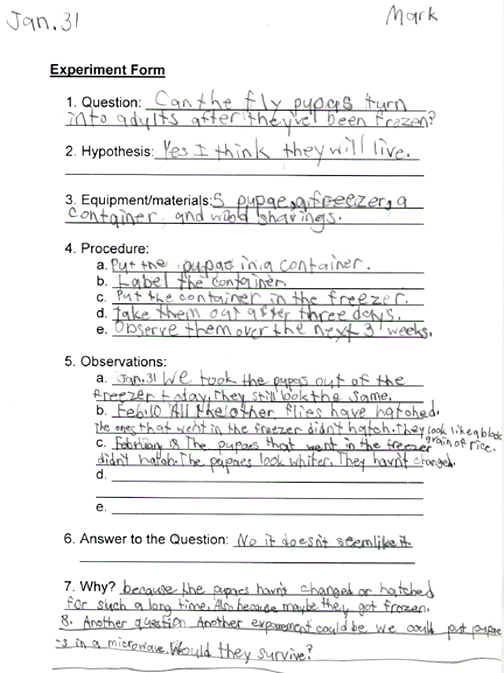 Jan. 31
Mark
Experiment Form
1. Question: Can the fly pupaes turn
into adults after they've been frozen?
2. Hypothesis: Yes I think they will live.
3. Equipment/materials: 5 pupae, a freezer, a
container, and wood shavings.
4. Procedure:
a. Put the pupae in a container.
b. Label the container
c. Put the container in the freezer.
d. Take them out after three days.
e. Observe them over the next 3 weeks.
5. Observations:
a. Jan. 31 We took the pupaes out of the
freezer today. They still look the same.
b. Feb. 10 All the other flies have hatched.
The ones that went in the freezer didn't hatch. They look like a black
grain of rice.
c. February 18 The pupaes that went in the freezer
didn't hatch. The pupaes look whiter. They havn't changed.
d.
e.
6. Answer to the Question: No it doesn't seem like it.
7. Why? because the pupaes havn't changed or hatched
for such a long time. Also because maybe they got frozen.
8. Another question Another experement could be we could put pupae
-s in a microwave. Would they survive?